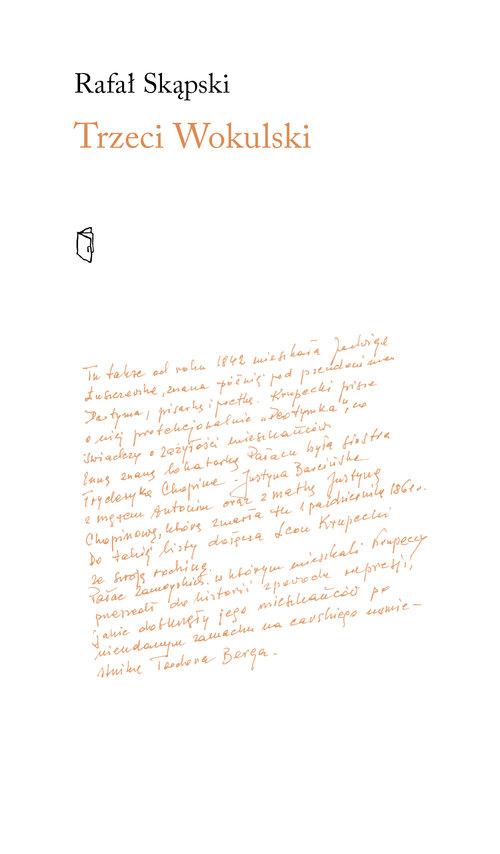 Rafał Skąpski
Trzeci Wokulski
Tu także od roku 1842 mieszkała Jadwiga
Łuszczewska, znana później pod pseudonimem
Deotyma, pisarka i poetka. Krupecki pisze
o niej protekcjonalnie "Deotymka", co
świadczy o zażyłości mieszkańców.
Inną znaną lokatorką Pałacu była siostra
Fryderyka Chopina - Justyna Barcińska
z mężem Antonim oraz z matką Justyną
Chopinową, która zmarła tu 1 października 1861 r.
Do takiej listy dołącza Leon Krupecki
ze swoją rodziną.
Pałac Zamoyskich, w którym mieszkali Krupeccy
przeszedł do historii z powodu represji,
jakie dotknęły jego mieszkańców po
nieudanym zamachu na carskiego namie-
stnika Teodora Berga.